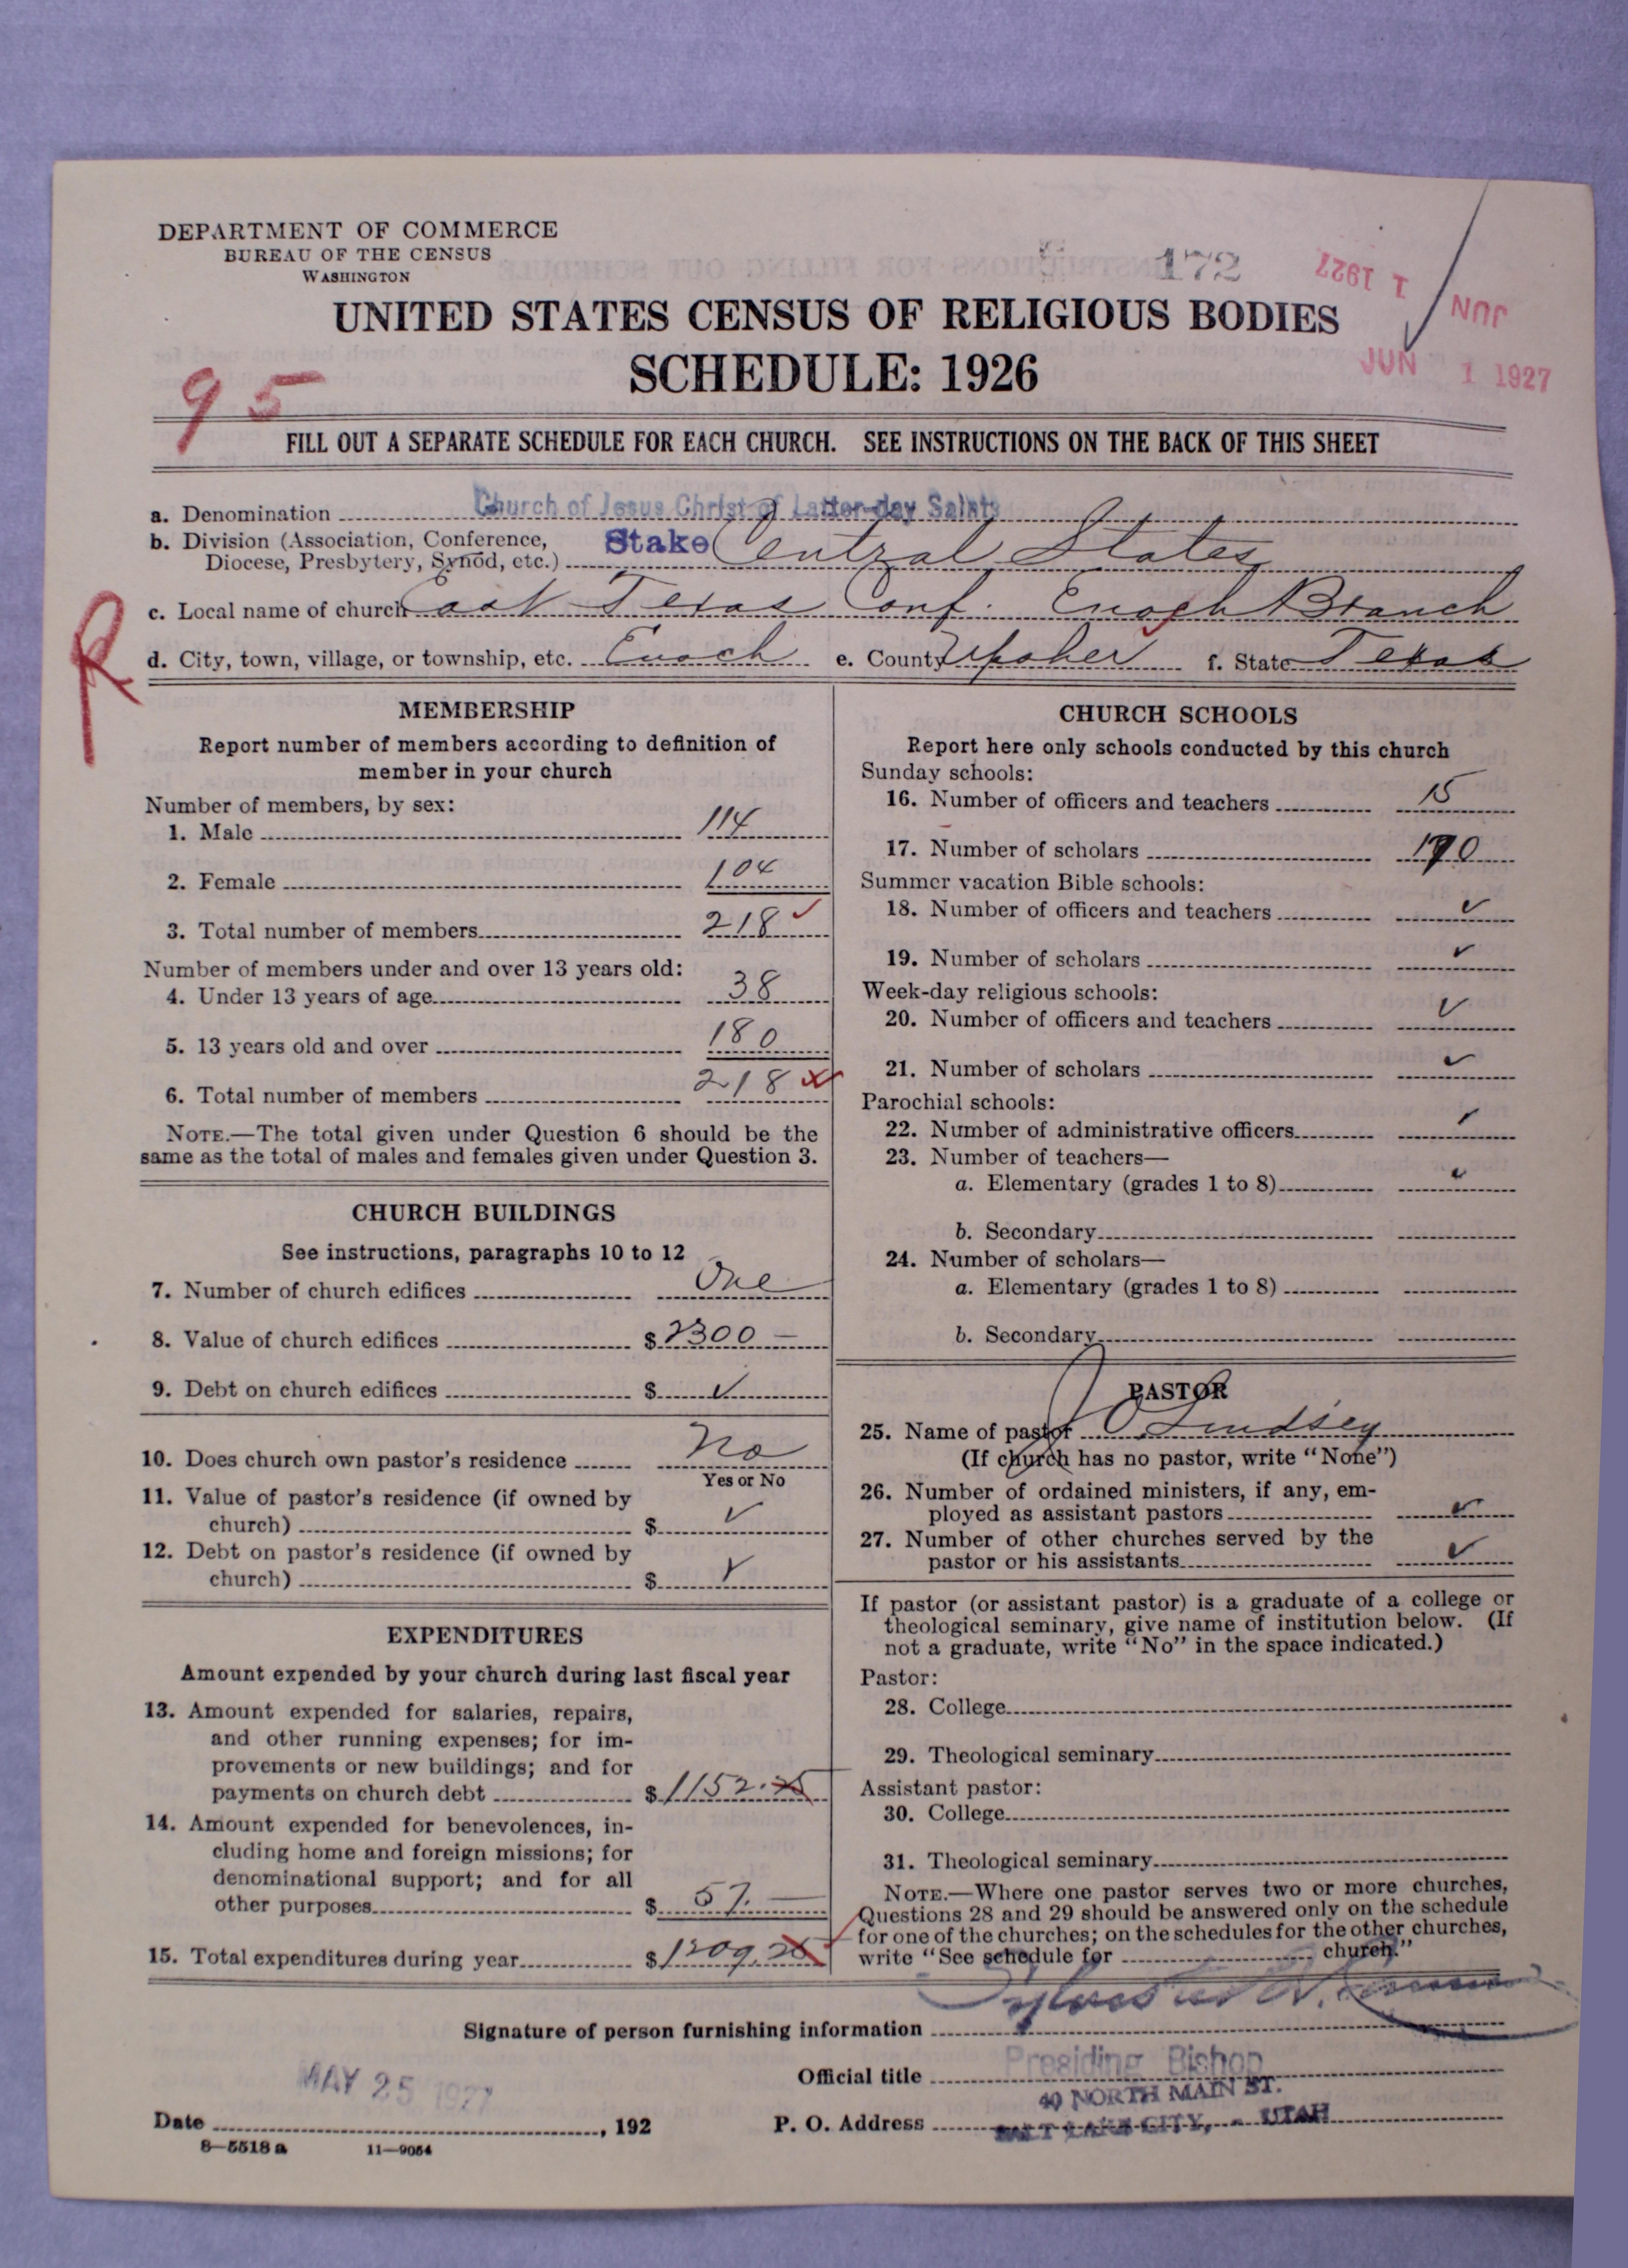 DEPARTMENT OF COMMERCE
BUREAU OF THE CENSUS
WASHINGTON
172
JUN 1 1927
JUN 1 1927
UNITED STATES CENSUS OF RELIGIOUS BODIES
SCHEDULE: 1926
95
FILL OUT A SEPARATE SCHEDULE FOR EACH CHURCH. SEE INSTRUCTIONS ON THE BACK OF THIS SHEET
a. Denomination Church of Jesus Christ of Latter-day Saints
b. Division (Association, Conference, Diocese, Presbytery, Synod, etc.) Stake Central States
c. Local name of church East Texas Conf. Enoch Branch
R
d. City, town, village, or township, etc. Enoch e. County f. State Texas
MEMBERSHIP
Report number of members according to definition of
member in your church
Number of members, by sex:
1. Male 114
2. Female 104
3. Total number of members 218
Number of members under and over 13 years old:
4. Under 13 years of age 38
5. 13 years old and over 180
6. Total number of members 218
NOTE.—The total given under Question 6 should be the
same as the total of males and females given under Question 3.
CHURCH BUILDINGS
See instructions, paragraphs 10 to 12
7. Number of church edifices One
8. Value of church edifices $ 2300 —
9. Debt on church edifices $ ✓
10. Does church own pastor's residence No
Yes or No
11. Value of pastor's residence (if owned by
church) $ ✓
12. Debt on pastor's residence (if owned by
church) $ ✓
EXPENDITURES
Amount expended by your church during last fiscal year
13. Amount expended for salaries, repairs,
and other running expenses; for im-
provements or new buildings; and for
payments on church debt $ 1152.25
14. Amount expended for benevolences, in-
cluding home and foreign missions; for
denominational support; and for all
other purposes $ 57. —
15. Total expenditures during year $ 1209.25
CHURCH SCHOOLS
Report here only schools conducted by this church
Sunday schools:
16. Number of officers and teachers 15
17. Number of scholars 170
Summer vacation Bible schools:
18. Number of officers and teachers ✓
19. Number of scholars ✓
Week-day religious schools:
20. Number of officers and teachers ✓
21. Number of scholars ✓
Parochial schools:
22. Number of administrative officers ✓
23. Number of teachers—
a. Elementary (grades 1 to 8) ✓
b. Secondary
24. Number of scholars—
a. Elementary (grades 1 to 8)
b. Secondary
PASTOR
25. Name of pastor Lindsey
(If church has no pastor, write "None")
26. Number of ordained ministers, if any, em-
ployed as assistant pastors ✓
27. Number of other churches served by the
pastor or his assistants ✓
If pastor (or assistant pastor) is a graduate of a college or
theological seminary, give name of institution below. (If
not a graduate, write "No" in the space indicated.)
Pastor:
28. College
29. Theological seminary
Assistant pastor:
30. College
31. Theological seminary
NOTE.—Where one pastor serves two or more churches,
Questions 28 and 29 should be answered only on the schedule
for one of the churches; on the schedules for the other churches,
write "See schedule for church."
Signature of person furnishing information
Official title Presiding Bishop
40 NORTH MAIN ST.
P. O. Address SALT LAKE CITY, - UTAH
MAY 25 1927
Date , 192
8—5518 a 11—9054